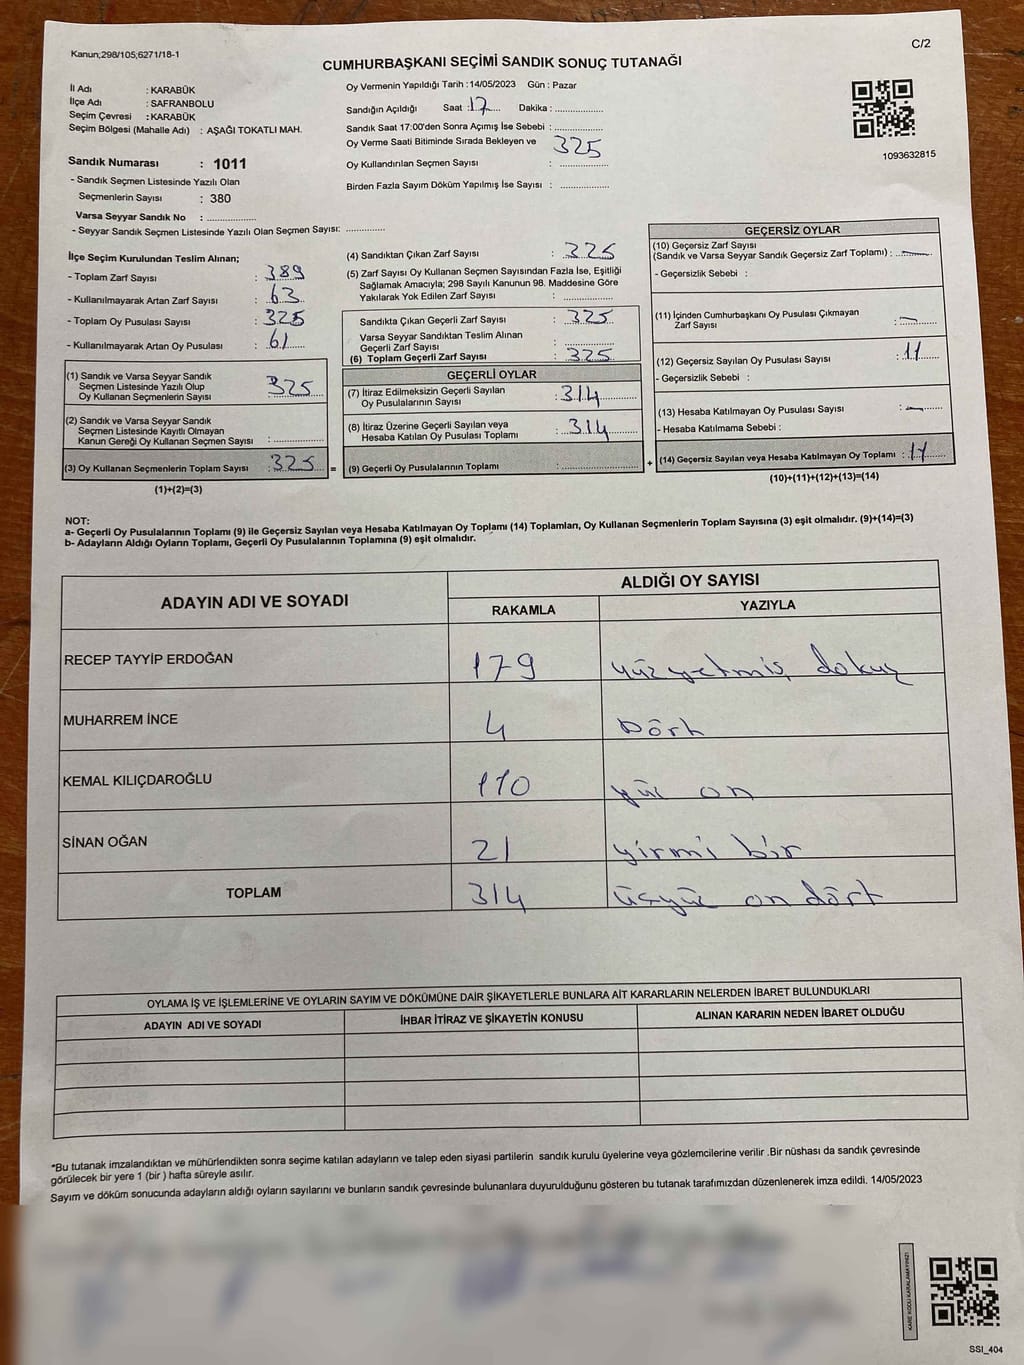 Kanun;298/105;6271/18-1
C/2
CUMHURBAŞKANI SEÇİMİ SANDIK SONUÇ TUTANAĞI
İl Adı : KARABÜK
İlçe Adı : SAFRANBOLU
Seçim Çevresi : KARABÜK
Seçim Bölgesi (Mahalle Adı) : AŞAĞI TOKATLI MAH.
Sandık Numarası : 1011
- Sandık Seçmen Listesinde Yazılı Olan
Seçmenlerin Sayısı : 380
Varsa Seyyar Sandık No : ..................
- Seyyar Sandık Seçmen Listesinde Yazılı Olan Seçmen Sayısı: .............
Oy Vermenin Yapıldığı Tarih : 14/05/2023 Gün : Pazar
Sandığın Açıldığı Saat : 17 Dakika : ................
Sandık Saat 17:00'den Sonra Açımış İse Sebebi : ................
Oy Verme Saati Bitiminde Sırada Bekleyen ve
Oy Kullandırılan Seçmen Sayısı : 325
Birden Fazla Sayım Döküm Yapılmış İse Sayısı : ................
1093632815
İlçe Seçim Kurulundan Teslim Alınan;
- Toplam Zarf Sayısı : 389
- Kullanılmayarak Artan Zarf Sayısı : 63
- Toplam Oy Pusulası Sayısı : 325
- Kullanılmayarak Artan Oy Pusulası : 61
(1) Sandık ve Varsa Seyyar Sandık
Seçmen Listesinde Yazılı Olup
Oy Kullanan Seçmenlerin Sayısı : 325
(2) Sandık ve Varsa Seyyar Sandık
Seçmen Listesinde Kayıtlı Olmayan
Kanun Gereği Oy Kullanan Seçmen Sayısı : ................
(3) Oy Kullanan Seçmenlerin Toplam Sayısı : 325 =
(1)+(2)=(3)
(4) Sandıktan Çıkan Zarf Sayısı : 325
(5) Zarf Sayısı Oy Kullanan Seçmen Sayısından Fazla İse, Eşitliği
Sağlamak Amacıyla; 298 Sayılı Kanunun 98. Maddesine Göre
Yakılarak Yok Edilen Zarf Sayısı : ................
Sandıkta Çıkan Geçerli Zarf Sayısı : 325
Varsa Seyyar Sandıktan Teslim Alınan
Geçerli Zarf Sayısı : ................
(6) Toplam Geçerli Zarf Sayısı : 325
GEÇERLİ OYLAR
(7) İtiraz Edilmeksizin Geçerli Sayılan
Oy Pusulalarının Sayısı : 314
(8) İtiraz Üzerine Geçerli Sayılan veya
Hesaba Katılan Oy Pusulası Toplamı : 314
(9) Geçerli Oy Pusulalarının Toplamı : ................ +
GEÇERSİZ OYLAR
(10) Geçersiz Zarf Sayısı
(Sandık ve Varsa Seyyar Sandık Geçersiz Zarf Toplamı) : —
- Geçersizlik Sebebi :
(11) İçinden Cumhurbaşkanı Oy Pusulası Çıkmayan
Zarf Sayısı : —
(12) Geçersiz Sayılan Oy Pusulası Sayısı : 11
- Geçersizlik Sebebi :
(13) Hesaba Katılmayan Oy Pusulası Sayısı : —
- Hesaba Katılmama Sebebi :
(14) Geçersiz Sayılan veya Hesaba Katılmayan Oy Toplamı : 11
(10)+(11)+(12)+(13)=(14)
NOT:
a- Geçerli Oy Pusulalarının Toplamı (9) ile Geçersiz Sayılan veya Hesaba Katılmayan Oy Toplamı (14) Toplamları, Oy Kullanan Seçmenlerin Toplam Sayısına (3) eşit olmalıdır. (9)+(14)=(3)
b- Adayların Aldığı Oyların Toplamı, Geçerli Oy Pusulalarının Toplamına (9) eşit olmalıdır.
ADAYIN ADI VE SOYADI
ALDIĞI OY SAYISI
RAKAMLA YAZIYLA
RECEP TAYYİP ERDOĞAN 179 yüzyetmiş dokuz
MUHARREM İNCE 4 Dört
KEMAL KILIÇDAROĞLU 110 yüz on
SİNAN OĞAN 21 yirmi bir
TOPLAM 314 üçyüz on dört
OYLAMA İŞ VE İŞLEMLERİNE VE OYLARIN SAYIM VE DÖKÜMÜNE DAİR ŞİKAYETLERLE BUNLARA AİT KARARLARIN NELERDEN İBARET BULUNDUKLARI
ADAYIN ADI VE SOYADI İHBAR İTİRAZ VE ŞİKAYETİN KONUSU ALINAN KARARIN NEDEN İBARET OLDUĞU
*Bu tutanak imzalandıktan ve mühürlendikten sonra seçime katılan adayların ve talep eden siyasi partilerin sandık kurulu üyelerine veya gözlemcilerine verilir .Bir nüshası da sandık çevresinde
görülecek bir yere 1 (bir ) hafta süreyle asılır.
Sayım ve döküm sonucunda adayların aldığı oyların sayılarını ve bunların sandık çevresinde bulunanlara duyurulduğunu gösteren bu tutanak tarafımızdan düzenlenerek imza edildi. 14/05/2023
KARE KODU KARALAMAYINIZ!
SSI_404